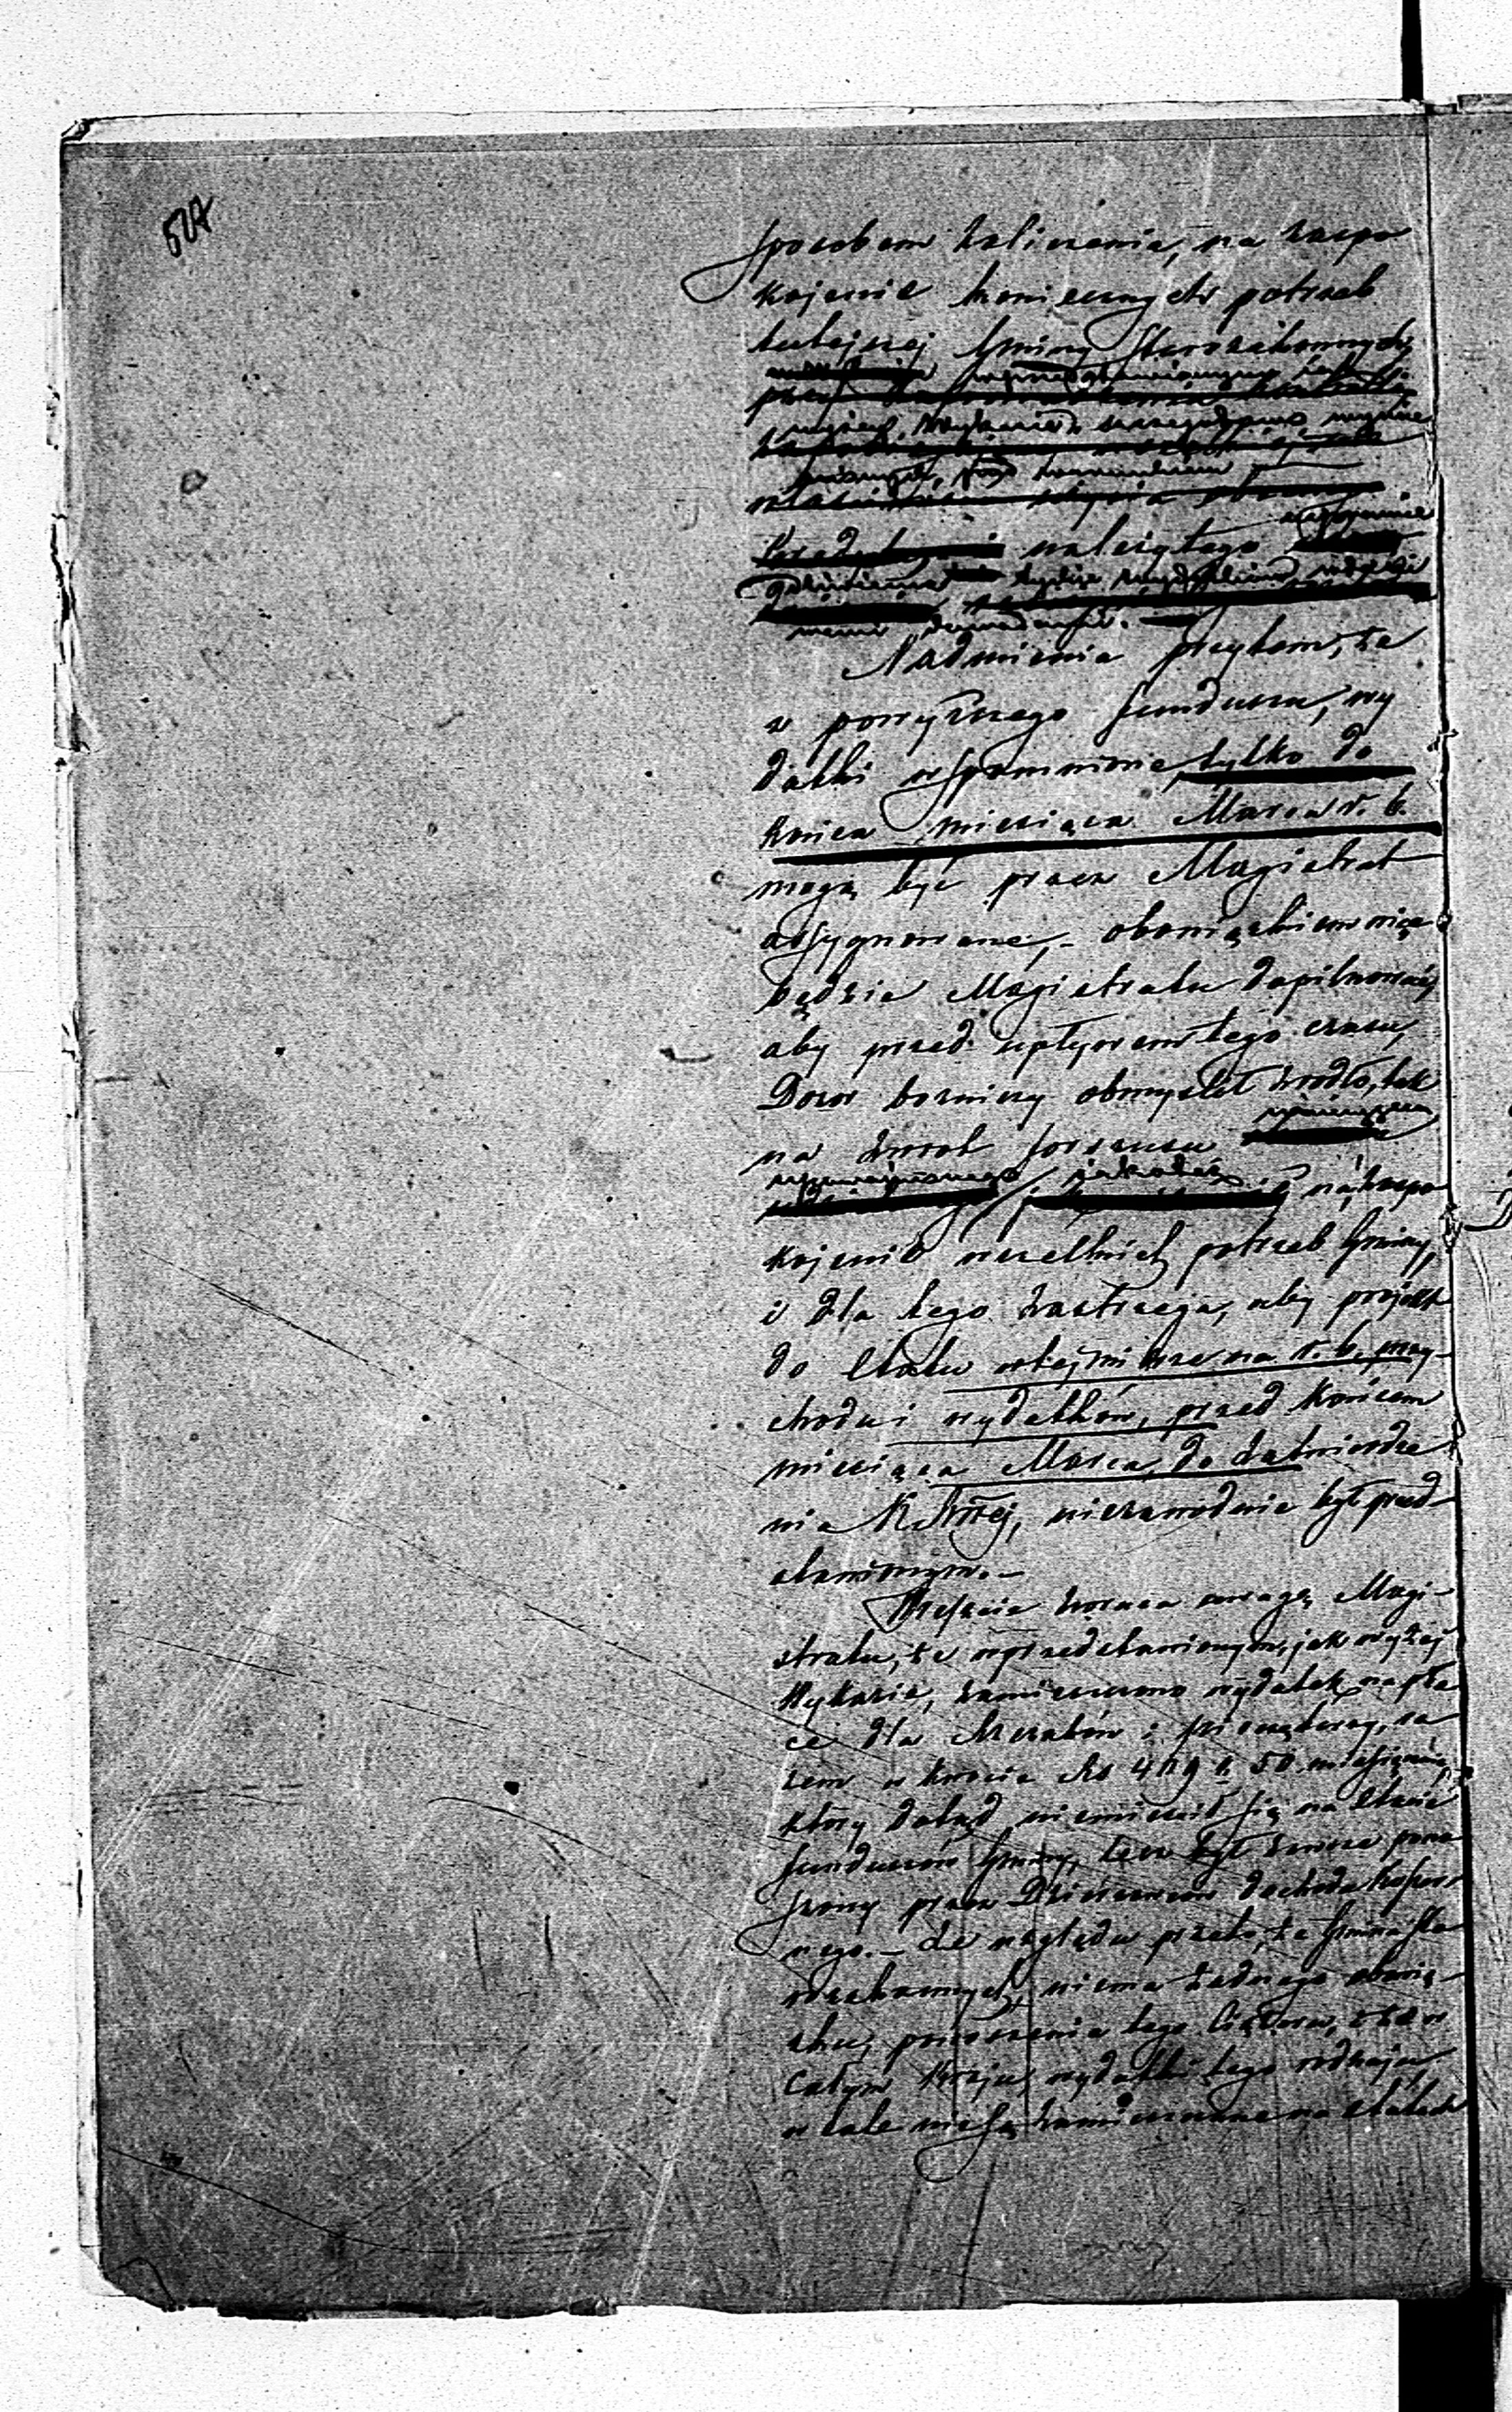 507
sposobem zaliczenia, na zaspo
kojenie koniecznych potrzeb
tutejszej Gminy Starozakonnych,
przy
wyżej Wykazie szczegółowo
należytego
Nadmienia przytem, że
z powyższego funduszu, wy
datki wspomnione, tylko do
końca miesiąca Marca r. b.
mogą być przez Magistrat
assygnowane, - obowiązkiem więc
będzie Magistratu dopilnować,
aby przed upływem tego czasu,
Dozór bożniczy obmyślił źródło, tak
na zwrot forszusu
jakoteż i na zaspo
kojenie wszelkich potrzeb Gminy,
i dla tego zastrzega, aby projekt
do Etatu na r. b. przy-
chodu i wydatków, przed końcem
miesiąca Marca, do zatwierdze
nia niezawodnie był przed-
stawionym. -
Wreszcie zwraca uwagę Magi-
stratu, że w przedstawionym, jak wyżej
Wykazie, zamieszczono wydatek na pła
ce dla i ra
zem w kwocie Rs 419 k. 50 miesięcznie,
który dotąd niemieścił się na Etacie
funduszów Gminy, lecz był zawsze pono
szony przez Dzierżawców dochodu Koszer
nego. - Ze względu przeto, że Gmina Sta
rozakonnych, niema żadnego obowią-
zku, ponoszenia tego Ciężaru, i że w
całym Kraju, wydatki tego rodzaju,
wcale nie są zamieszczane na etatach